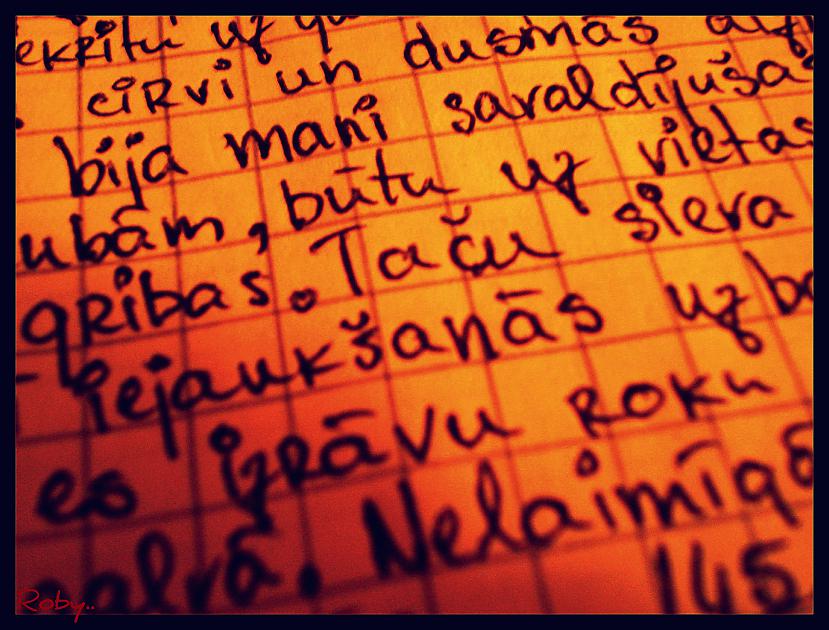 cirvi un dusmās
bija mani savaldījuša
ubām, būtu uz vietas
gribas. Taču sieva
iejaukšanās uz
es izrāvu roku
galvā. Nelaimīgā
145
Roby..